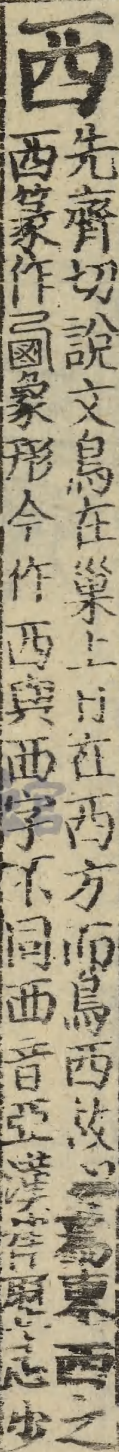 西
先齊切說文鳥在巢上日在西方而鳥西故以爲東西之
西篆作𠧧象形今作西與襾字不同襾音亞漢